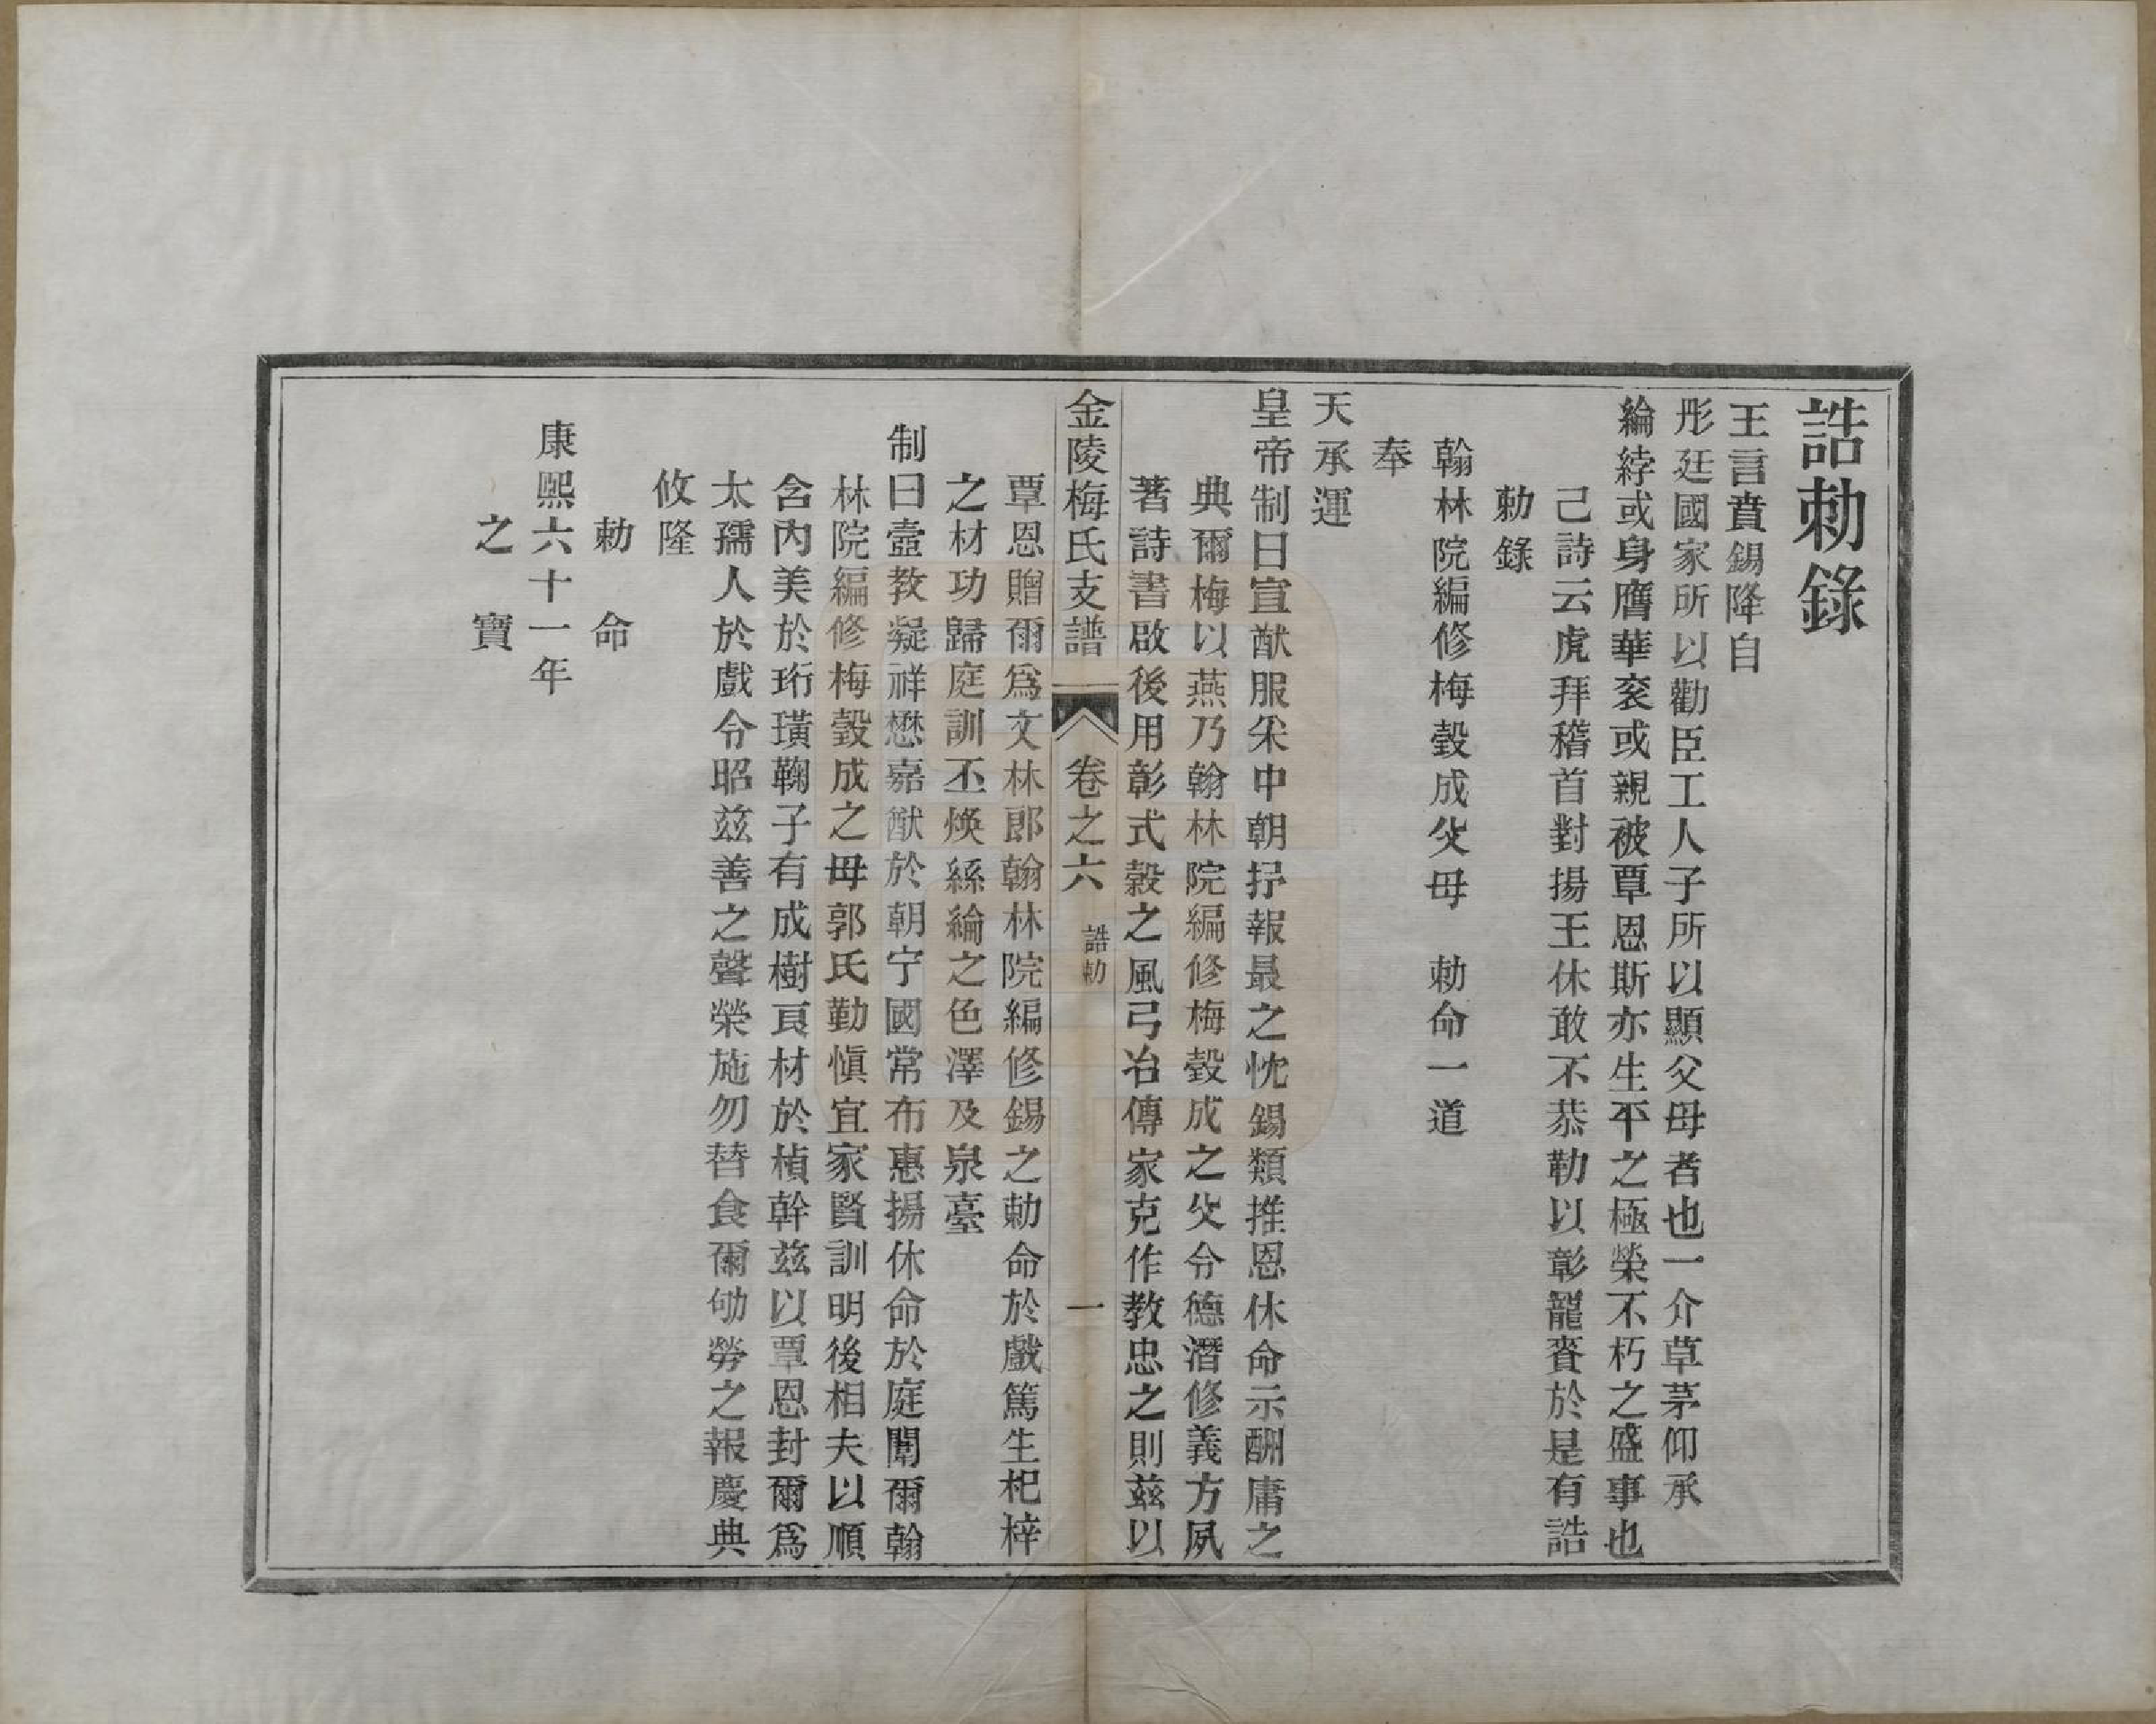 誥勅錄
王言賁錫降自
彤廷國家所以勸臣工人子所以顯父母者也一介草茅仰承
綸綍或身膺華衮或親被覃恩斯亦生平之極榮不朽之盛事也
己詩云虎拜稽首對揚王休敢不恭勒以彰寵賚於是有誥
勅錄
翰林院編修梅瑴成父母 勅命一道
奉
天承運
皇帝制曰宣猷服寀中朝抒報最之忱錫類推恩休命示酬庸之
典爾梅以燕乃翰林院編修梅瑴成之父令德潛修義方夙
著詩書啟後用彰式穀之風弓冶傳家克作教忠之則兹以
金陵梅氏支譜 卷之六 誥勅 一
覃恩贈爾爲文林郎翰林院編修錫之勅命於戲篤生杞梓
之材功歸庭訓丕煥絲綸之色澤及泉臺
制曰壼教凝祥懋嘉猷於朝宁國常布惠揚休命於庭闈爾翰
林院編修梅瑴成之母郭氏勤慎宜家賢訓明後相夫以順
含內美於珩璜鞠子有成樹良材於楨幹兹以覃恩封爾爲
太孺人於戲令昭兹善之聲榮施勿替食爾劬勞之報慶典
攸隆
勅命
康熙六十一年
之寶